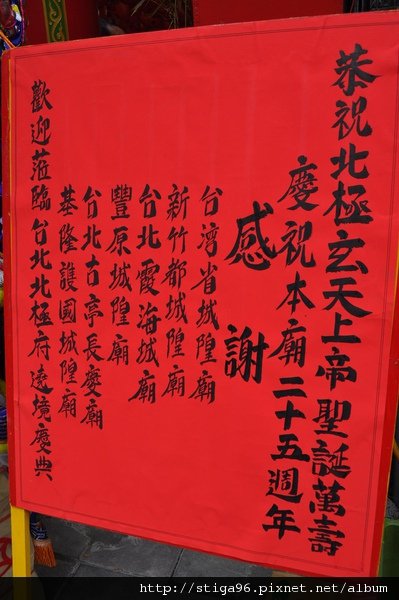 恭祝北極玄天上帝聖誕萬壽
慶祝本廟二十五週年
感謝
台湾省城隍廟
新竹都城隍廟
台北霞海城廟
豐原城隍廟
台北古亭長慶廟
基隆護國城隍廟
歡迎蒞臨台北北極府遶境慶典
http://stiga96.pixnet.net/album